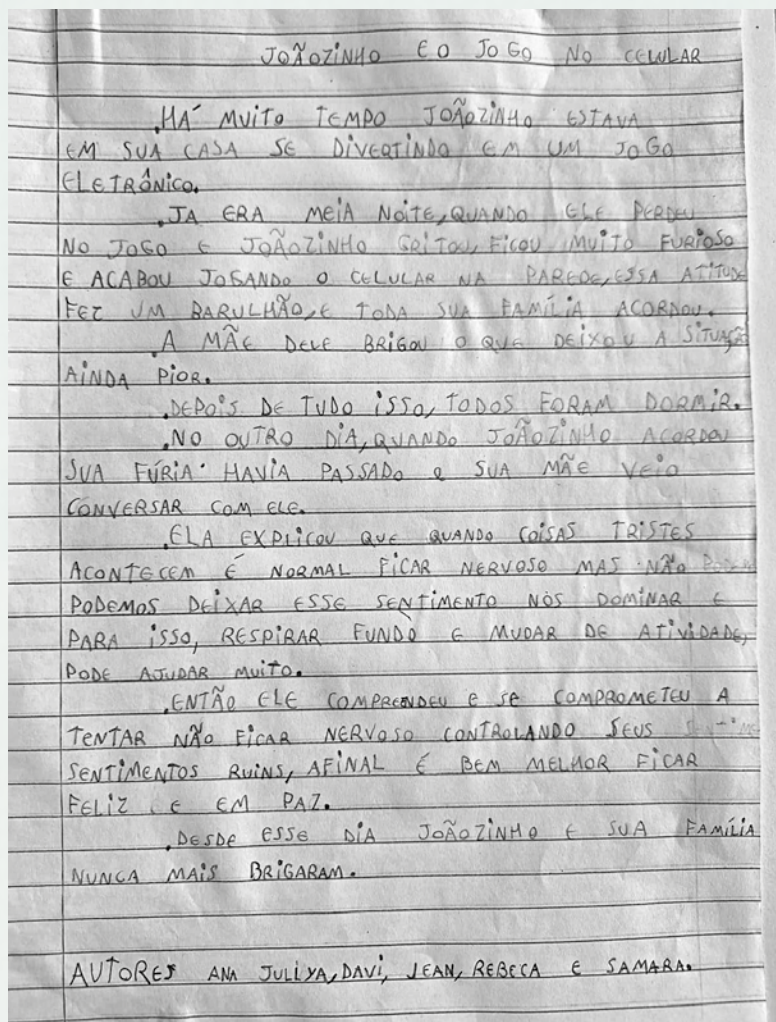 JOÃOZINHO E O JOGO NO CELULAR
.HÁ MUITO TEMPO JOÃOZINHO ESTAVA
EM SUA CASA SE DIVERTINDO EM UM JOGO
ELETRÔNICO.
.JA ERA MEIA NOITE, QUANDO ELE PERDEU
NO JOGO E JOÃOZINHO GRITOU, FICOU MUITO FURIOSO
E ACABOU JOGANDO O CELULAR NA PAREDE, ESSA ATITUDE
FEZ UM BARULHÃO, E TODA SUA FAMÍLIA ACORDOU.
.A MÃE DELE BRIGOU O QUE DEIXOU A SITUAÇÃO
AINDA PIOR.
.DEPOIS DE TUDO ISSO, TODOS FORAM DORMIR.
.NO OUTRO DIA, QUANDO JOÃOZINHO ACORDOU
SUA FÚRIA HAVIA PASSADO e SUA MÃE VEIO
CONVERSAR COM ELE.
.ELA EXPLICOU QUE QUANDO COISAS TRISTES
ACONTECEM É NORMAL FICAR NERVOSO MAS NÃO
PODEMOS DEIXAR ESSE SENTIMENTO NOS DOMINAR E
PARA ISSO, RESPIRAR FUNDO E MUDAR DE ATIVIDADE,
PODE AJUDAR MUITO.
.ENTÃO ELE COMPREENDEU E SE COMPROMETEU A
TENTAR NÃO FICAR NERVOSO CONTROLANDO SEUS
SENTIMENTOS RUINS, AFINAL É BEM MELHOR FICAR
FELIZ E EM PAZ.
.DESDE ESSE DIA JOÃOZINHO E SUA FAMÍLIA
NUNCA MAIS BRIGARAM.
AUTORES ANA JULIYA, DAVI, JEAN, REBECA E SAMARA.